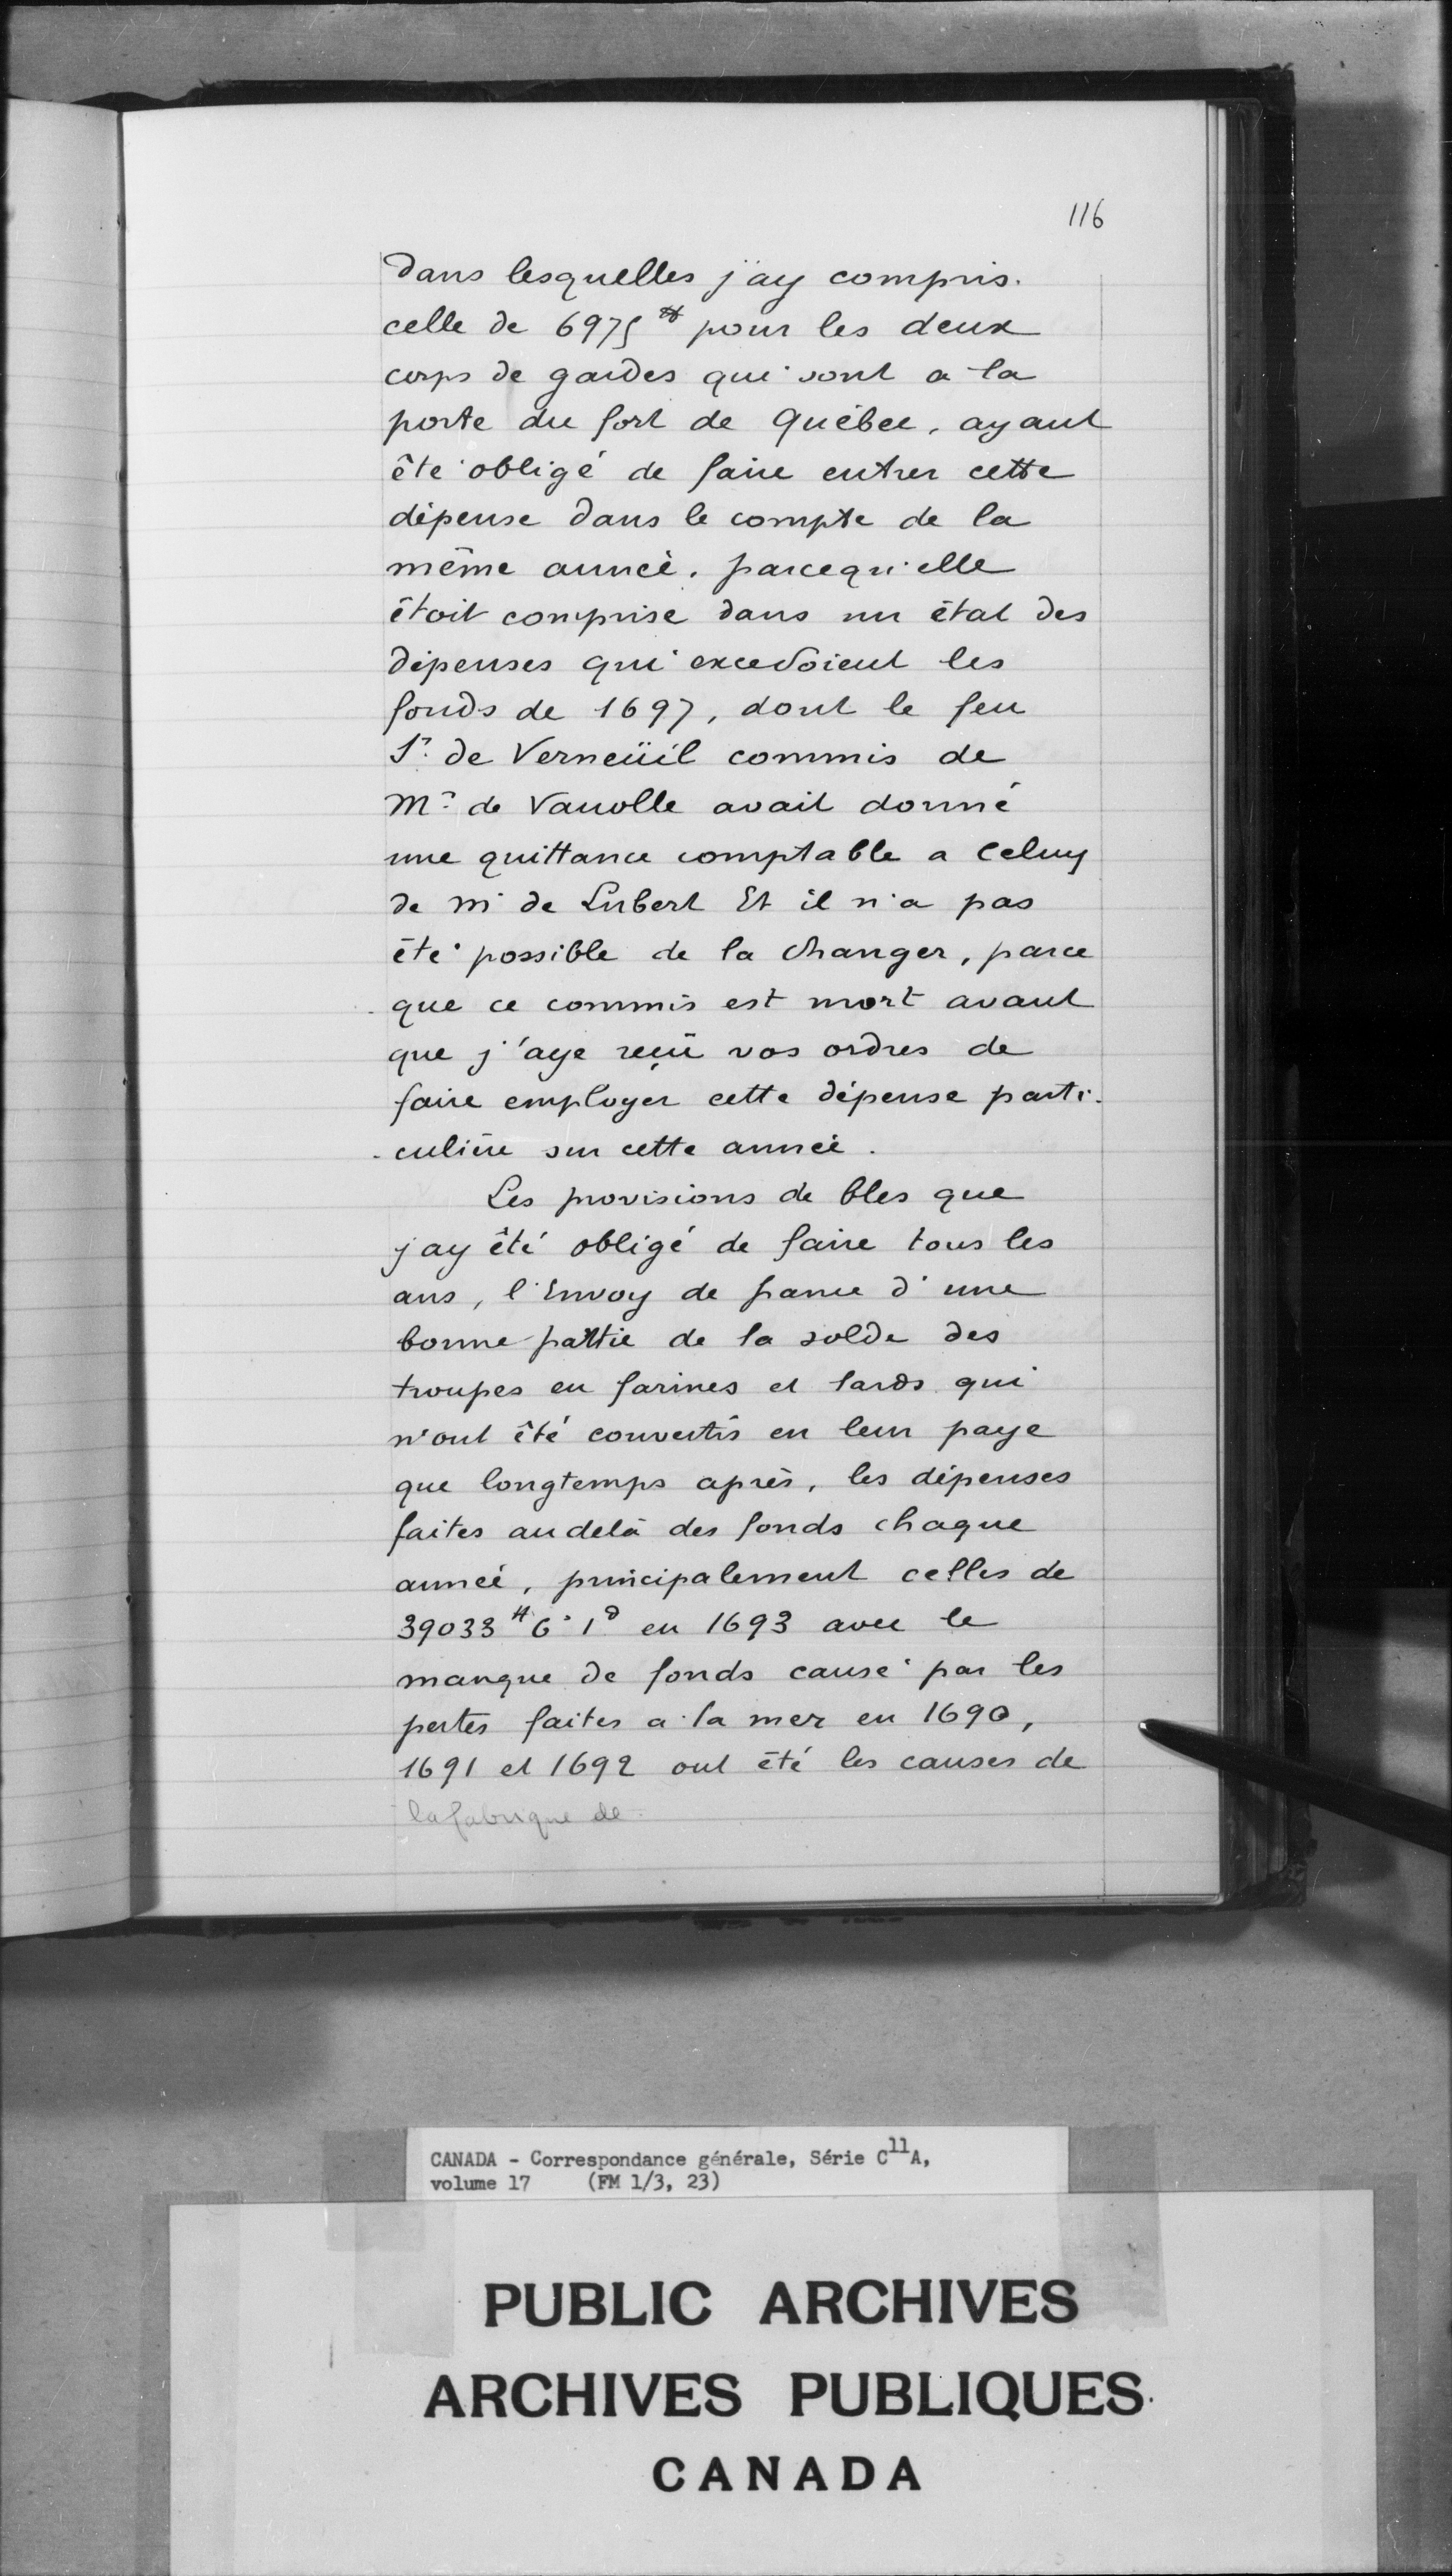 116
Dans lesquelles j'ay compris.
celle de 6975 ₶ pour les deux
corps de gardes qui sont a la
porte du fort de Québec, ayant
êté obligé de faire entrer cette
dépense dans le compte de la
même année, parcequ'elle
étoit comprise dans un état des
dépenses qui excedoient les
fonds de 1697, dont le feu
Sr. de Verneüil commis de
Mr. de Vanolle avait donné
une quittance comptable a Celuy
de m de Lubert Et il n'a pas
été possible de la changer, parce
que ce commis est mort avant
que j'aye reçü vos ordres de
faire employer cette dépense parti-
-culiere sur cette année.
Les provisions de bles que
j'ay êté obligé de faire tous les
ans, l'Envoy de france d'une
bonne partie de la solde des
troupes en farines et lards qui
n'ont êté convertis en leur paye
que longtemps après, les dépenses
faites au delà des fonds chaque
année, principalement celles de
39033 ₶ 6 s 1 d en 1693 avec le
manque de fonds causé par les
pertes faites a la mer en 1690,
1691 et 1692 ont été les causes de
la fabrique de
CANADA - Correspondance générale, Série C11A,
volume 17 (FM 1/3, 23)
PUBLIC ARCHIVES
ARCHIVES PUBLIQUES
CANADA